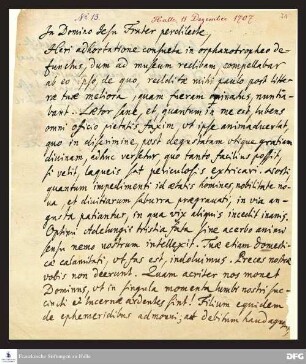 N. 13.
Halle, 11 Dezember 1707
In Domino Jesu Frater perdilecte,
Heri adhortatione consueta in orphanotropheo de-
functus, dum ad museum reclitam, compellabar
ab eo ipso, de quo, recldita mihi paulo post litte-
ra tuae meliora, quam fueram ominatus, nuntia-
bant. Laetor sane, et, quantum in me est, lubens
omni officio pietatis faxim, ut ipse animadvertat,
quo in discrimine, post degustatam utique gratiam
divinam, adhuc versetur quo tanto facilius possit,
si velit, laqueis sat periculosis extricari. Nosti
quantum impedimenti id aetatis homines, nobilitate no-
va, et divitiarum saburra praegravati, in via an-
gusta patiantur, in qua vix aliquis incedit inanis.
Optimi Adelungii tristia fata sine acerbo animi
sensu nemo nostrum intellexit. Tuae etiam domesti-
cae calamitati, ut fas est, indoluimus. Preces nostrae
vobis non deerunt. Quam acriter nos monet
Dominus, ut in singula momenta lumbi nostri suc-
cincti et lucernae ardentes sint! Filium equidem
de ephemeridibus admonui; at debitum haudquaq
Franckesche Stiftungen zu Halle
DFG